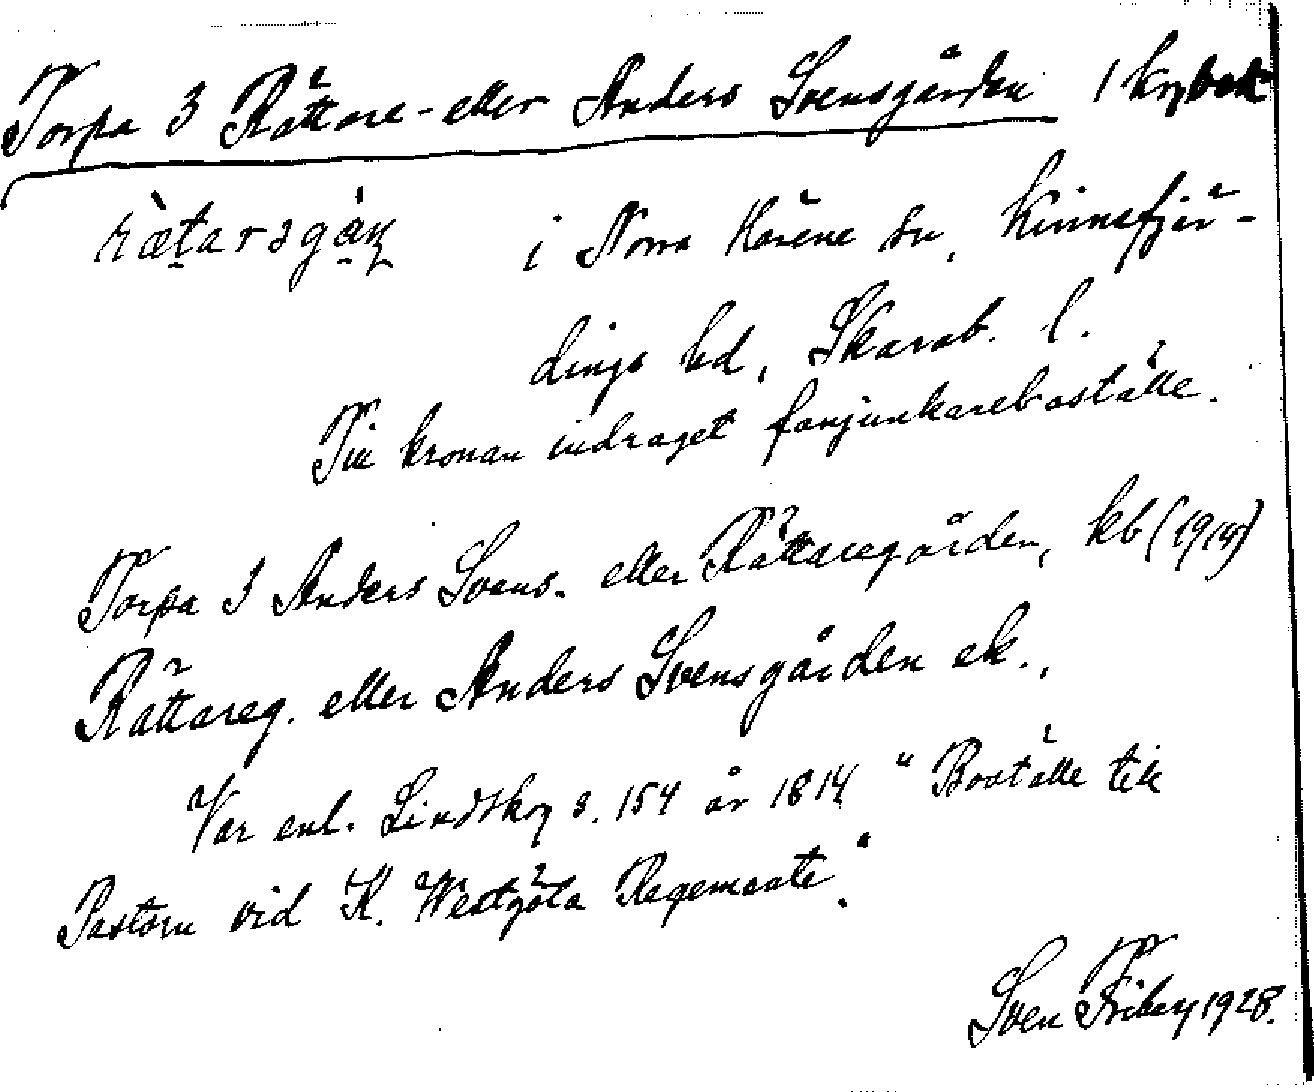 Torpa 3 Rättare- eller Anders Svensgården 1
i Norra Kärene sn, Kinnefjär-
dings hd, Skarab. l.
Till kronan indraget fanjunkareboställe.
Torpa 3 Anders Svens- eller Rättaregården, kb (1914)
Rättareg. eller Anders Svensgården ek.,
Var enl. Lindskog s. 154 år 1814 "Boställe till
Pastorn vid K. Westgöta Regemente".
Sven Friberg 1928.